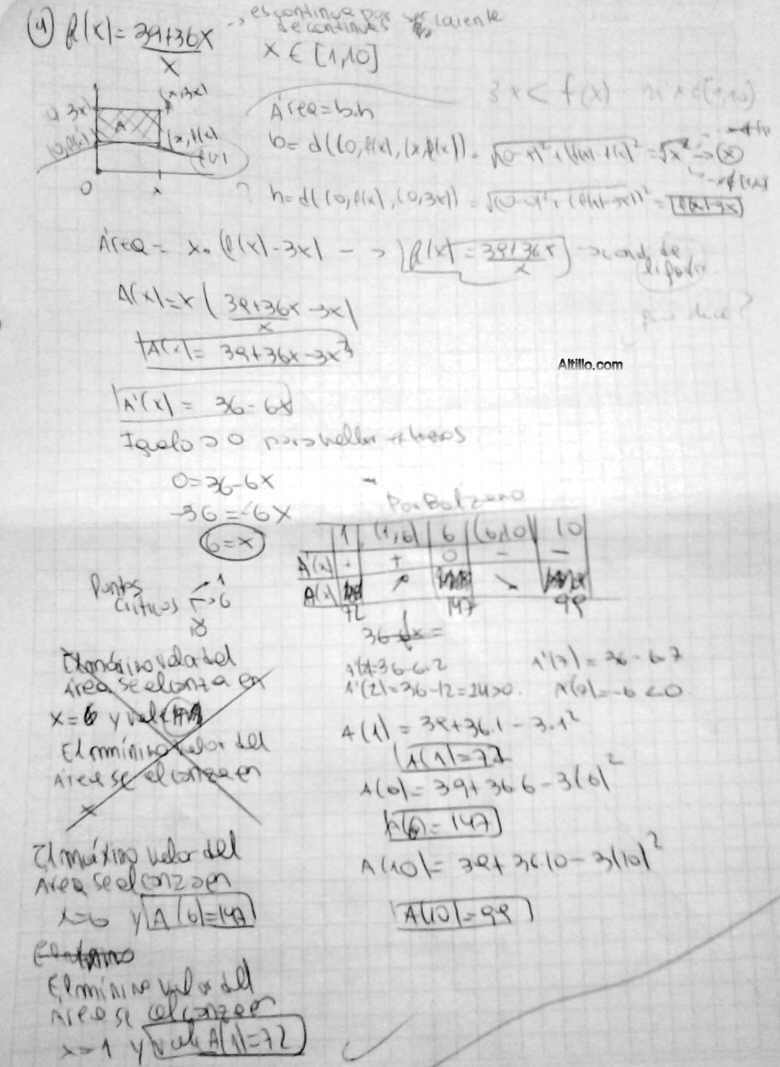 4) f(x) = 39+36x / x → es continua por ser cociente de continuas
x ∈ [1,10]
3x < f(x)
Área = b.h
(x,3x)
(0,3x)
A
(x,f(x))
(0,f(x))
0
x
b = d((0,f(x)), (x,f(x))) = √(0-x)²+(f(x)-f(x))² = √x² → x
h = d((0,f(x)), (0,3x)) = √(0-0)²+(f(x)-3x)² = f(x)-3x
Área = x.(f(x)-3x) → f(x) = 39+36x / x
A(x) = x (39+36x / x - 3x)
A(x) = 39+36x-3x²
Altillo.com
A'(x) = 36-6x
Igualo a 0 para hallar extremos
0 = 36-6x
-36 = -6x
6 = x
Por Bolzano
1 (1,6) 6 (6,10) 10
A'(x) + 0 - -
A(x) ↗ ↘
72 147 99
Puntos críticos 1 6 10
36-6x =
El máximo valor del
Área se alcanza en
x=6 y vale
El mínimo valor del
Área se alcanza en
x
A'(2)=36-6.2
A'(2)=36-12=24>0
A'(7)=36-6.7
A'(7)=-6<0
A(1) = 39+36.1-3.1²
A(1)=72
A(6) = 39+36.6-3(6)²
A(6)=147
A(10) = 39+36.10-3(10)²
A(10)=99
El máximo valor del
Área se alcanza en
x=6 y A(6)=147
El mínimo valor del
Área se alcanza en
x=1 y vale A(1)=72